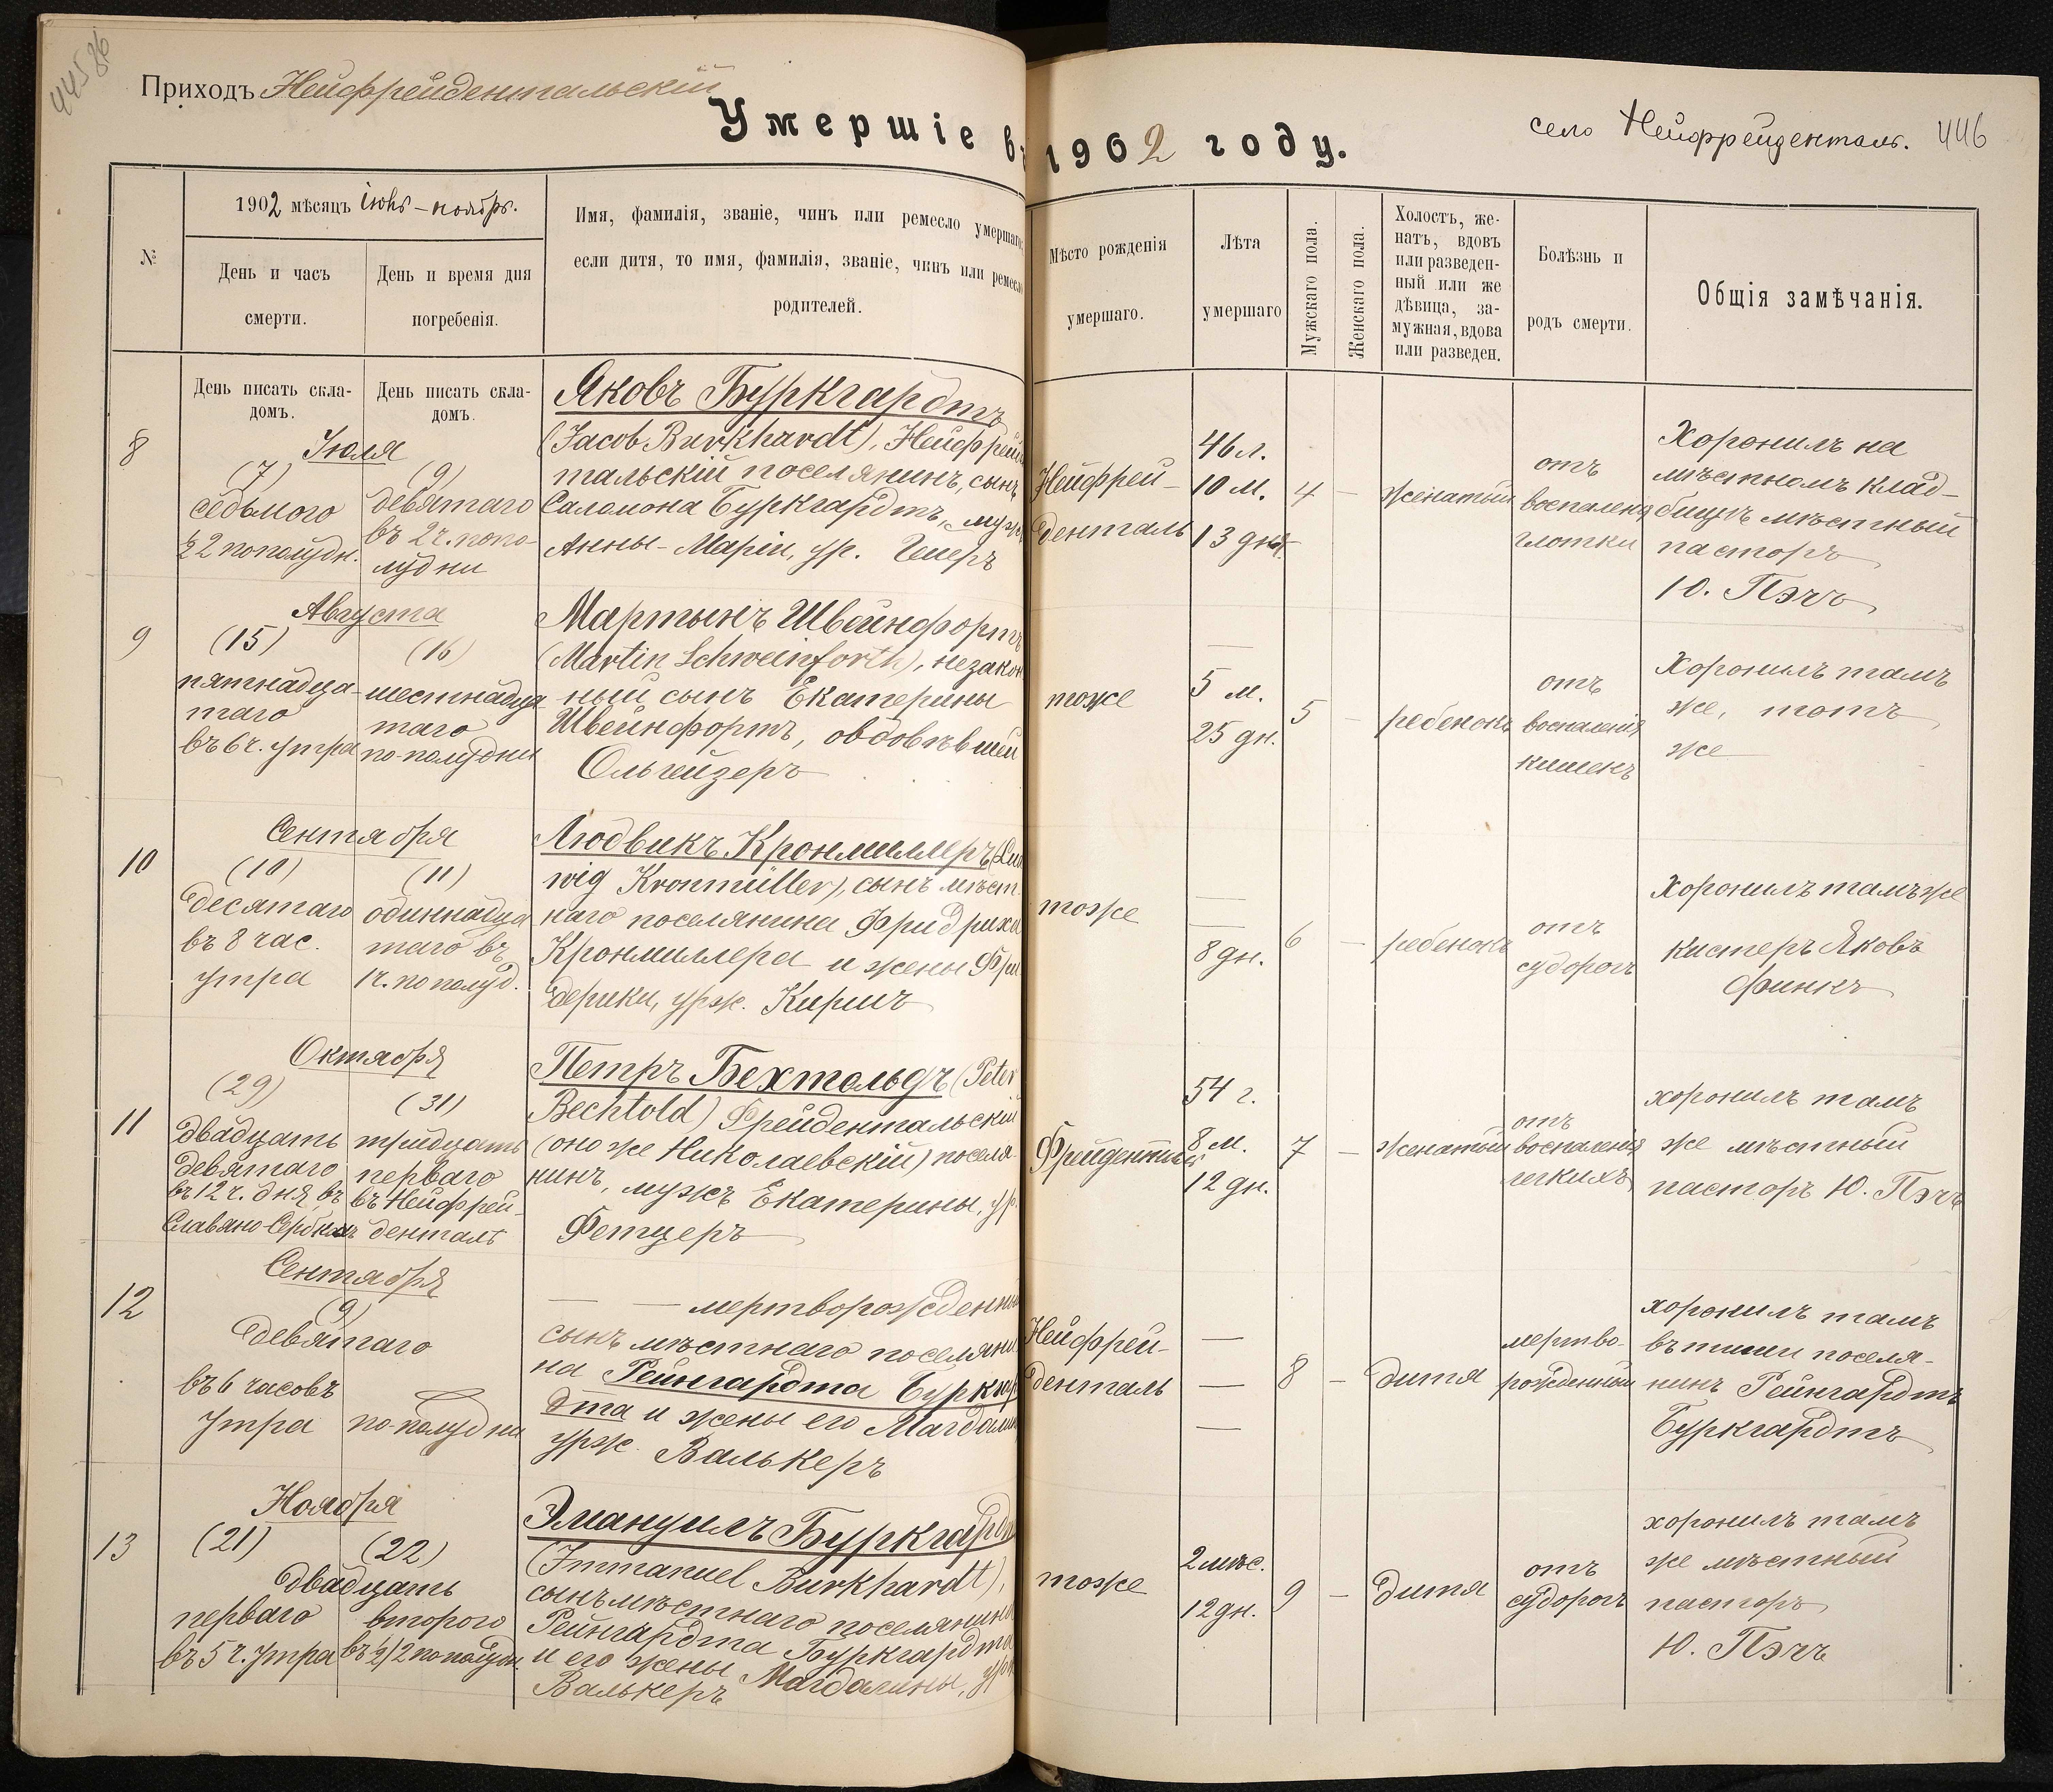 Приходъ Нейфрейдентальскій
Умершіе въ 1902 году.
село Нейфрейденталь. 446
№
1902 мѣсяцъ іюнь - ноябрь.
День и часъ
смерти.
День и время дня
погребенія.
Имя, фамилія, званіе, чинъ или ремесло умершаго,
если дитя, то имя, фамилія, званіе, чинъ или ремесло
родителей.
Мѣсто рожденія
умершаго.
Лѣта
умершаго
Мужскаго пола.
Женскаго пола.
Холостъ, же-
натъ, вдовъ
или разведен-
ный или же
дѣвица, за-
мужная, вдова
или разведен.
Болѣзнь и
родъ смерти.
Общія замѣчанія.
День писать скла-
домъ.
День писать скла-
домъ.
8
Іюля
(7)
седьмого
½ 2 пополудн.
(9)
девятаго
въ 2 ч. попо-
лудни
Яковъ Буркгардтъ
(Jacob Burkhardt), Нейфрей
тальскій поселянинъ, сынъ
Саломона Буркгардтъ, мужъ
Анны-Маріи, ур.
Нейфрей-
денталь
46 л.
10 м.
13 дня
4
-
женатый
отъ
воспаленія
глотки
Хоронилъ на
мѣстномъ клад-
бищѣ мѣстный
пасторъ
Ю. Пэчъ
9
Августа
(15)
пятнадца-
таго
въ 6 ч. утра
(16)
шестнадца
таго
по-полудни
Мартынъ Швейнфортъ
(Martin Schweinforth), незакон
ный сынъ Екатерины
Швейнфортъ, овдовѣвшей
Ольгейзеръ
тоже
—
5 м.
25 дн.
5
-
ребенокъ
отъ
воспаленія
кишекъ
Хоронилъ тамъ
же, тотъ
же
10
Сентября
(10)
десятаго
въ 8 час.
утра
(11)
одиннадца
таго въ
1 ч. по полуд.
Людвикъ Кронмиллеръ (Lud
wig Kronmüller), сынъ мѣст-
наго поселянина Фридриха
Кронмиллера и жены Фри
дерики, урж. Киршъ
тоже
—
—
8 дн.
6
-
ребенокъ
отъ
судорогъ
Хоронилъ тамъ же
кистеръ Яковъ
Финкъ
11
Октября
(29)
двадцать
девятаго
въ 12 ч. дня, въ
Славяно-Сербкахъ
(31)
тридцать
перваго
въ Нейфрей-
денталѣ
Петръ Бехтольдъ (Peter
Bechtold) Фрейдентальскій
(оно же Николаевскій) поселя
нинъ, мужъ Екатерины, ур.
Фетцеръ
54 г.
8 м.
12 дн.
7
-
женатый
отъ
воспаленія
легкихъ
хоронилъ тамъ
же мѣстный
пасторъ Ю. Пэчъ
12
Сентября
(9)
девятаго
въ 6 часовъ
утра
по-полудни
— — мертворожденный
сынъ мѣстнаго поселяни
на Рейнгардта Буркгар
дта и жены его Магдалины
урж. Валькеръ
Нейфрей-
денталь
—
—
—
8
-
дитя
мертво-
рожденный
хоронилъ тамъ
въ тиши поселя-
нинъ Рейнгардтъ
Буркгардтъ
13
Ноября
(21)
(22)
двадцать
перваго
въ 5 ч. утра
второго
въ ½ 2 по полудн.
Эмануилъ Буркгардтъ
(Immanuel Burkhardt),
сынъ мѣстнаго поселянина
Рейнгардта Буркгардта
и его жены Магдалины, урж
Валькеръ
тоже
2 мѣс.
12 дн.
9
-
дитя
отъ
судорогъ
хоронилъ тамъ
же мѣстный
пасторъ
Ю. Пэчъ